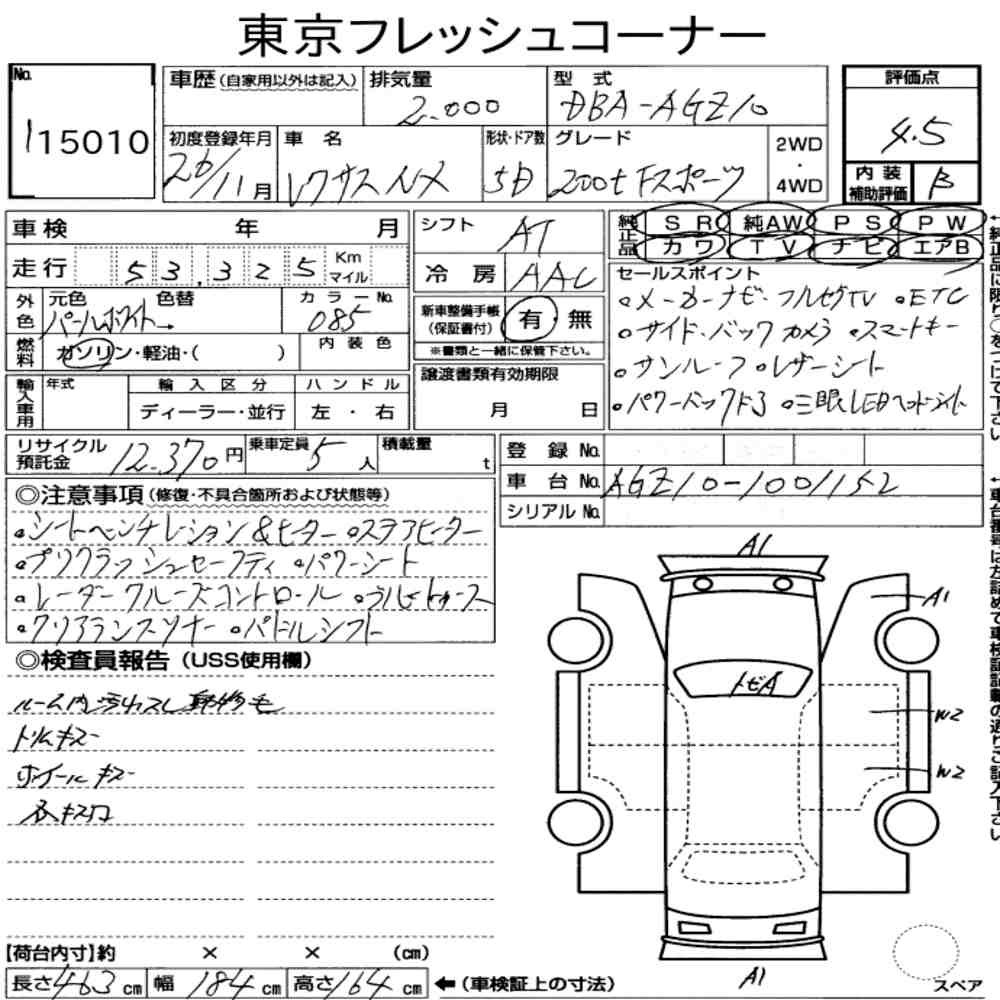 東京フレッシュコーナー
No.
115010
車歴(自家用以外は記入) 排気量 型式
2.000 DBA-AGZ10
初度登録年月 車名 形状・ドア数 グレード
26/11月 レクサスNX 5D 200t Fスポーツ
2WD
・
4WD
評価点
4.5
内装
補助評価 B
車検 年 月
走行 53,325 Km
マイル
外色 元色 色替 カラーNo.
パールホワイト→ 085
燃料 ガソリン・軽油・( ) 内装色
輸入車用 年式 輸入区分 ハンドル
ディーラー・並行 左・右
シフト AT
冷房 AAC
新車整備手帳
(保証書付) 有 無
※書類と一緒に保管下さい。
譲渡書類有効期限
月 日
純正品 SR 純AW PS PW
カワ TV ナビ エアB
セールスポイント
○メーカーナビ・フルセグTV ○ETC
○サイド・バックカメラ ○スマートキー
○サンルーフ ○レザーシート
○パワーバックドア ○三眼LEDヘッドライト
リサイクル
預託金 12.370円 乗車定員 5人 積載量 t
登録No.
車台No. AGZ10-1001152
シリアルNo.
◎注意事項(修復・不具合箇所および状態等)
○シートベンチレーション&ヒーター ○ステアヒーター
○プリクラッシュセーフティ ○パワーシート
○レーダークルーズコントロール
○クリアランスソナー ○パドルシフト
◎検査員報告(USS使用欄)
ルーム内汚れスレ
トリムキズ
ホイールキズ
A1
A1
トビA
W2
W2
A1
スペア
【荷台内寸】約 × × (cm)
長さ463cm 幅184cm 高さ164cm ←(車検証上の寸法)
←純正品に限り○をつけて下さい
←車台番号は左詰めで車検証記載の通りご記入下さい